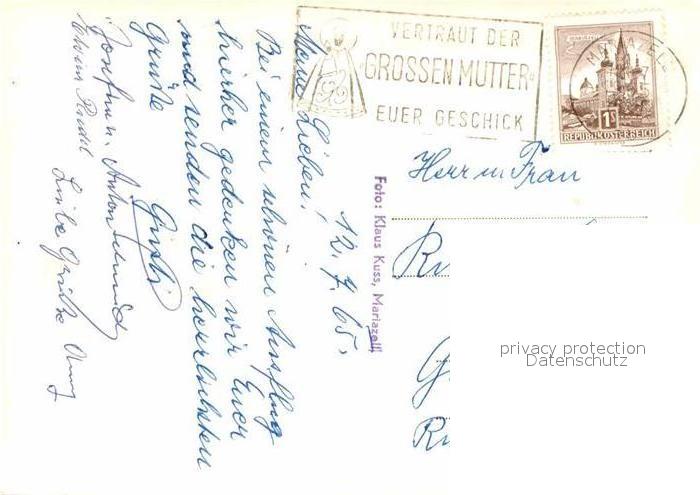 VERTRAUT DER
„GROSSEN MUTTER“
EUER GESCHICK
MARIAZELL
1S
REPUBLIK ÖSTERREICH
12. 7. 65.
Meine Lieben!
Bei einem schönen Ausflug
hierher gedenken wir Euer
und senden die herzlichsten
Grüße Gusti
Josef u. Anton
Liebe Grüße
Foto: Klaus Kuss, Mariazell
Herr u. Frau
Ru
G
Ru
privacy protection
Datenschutz